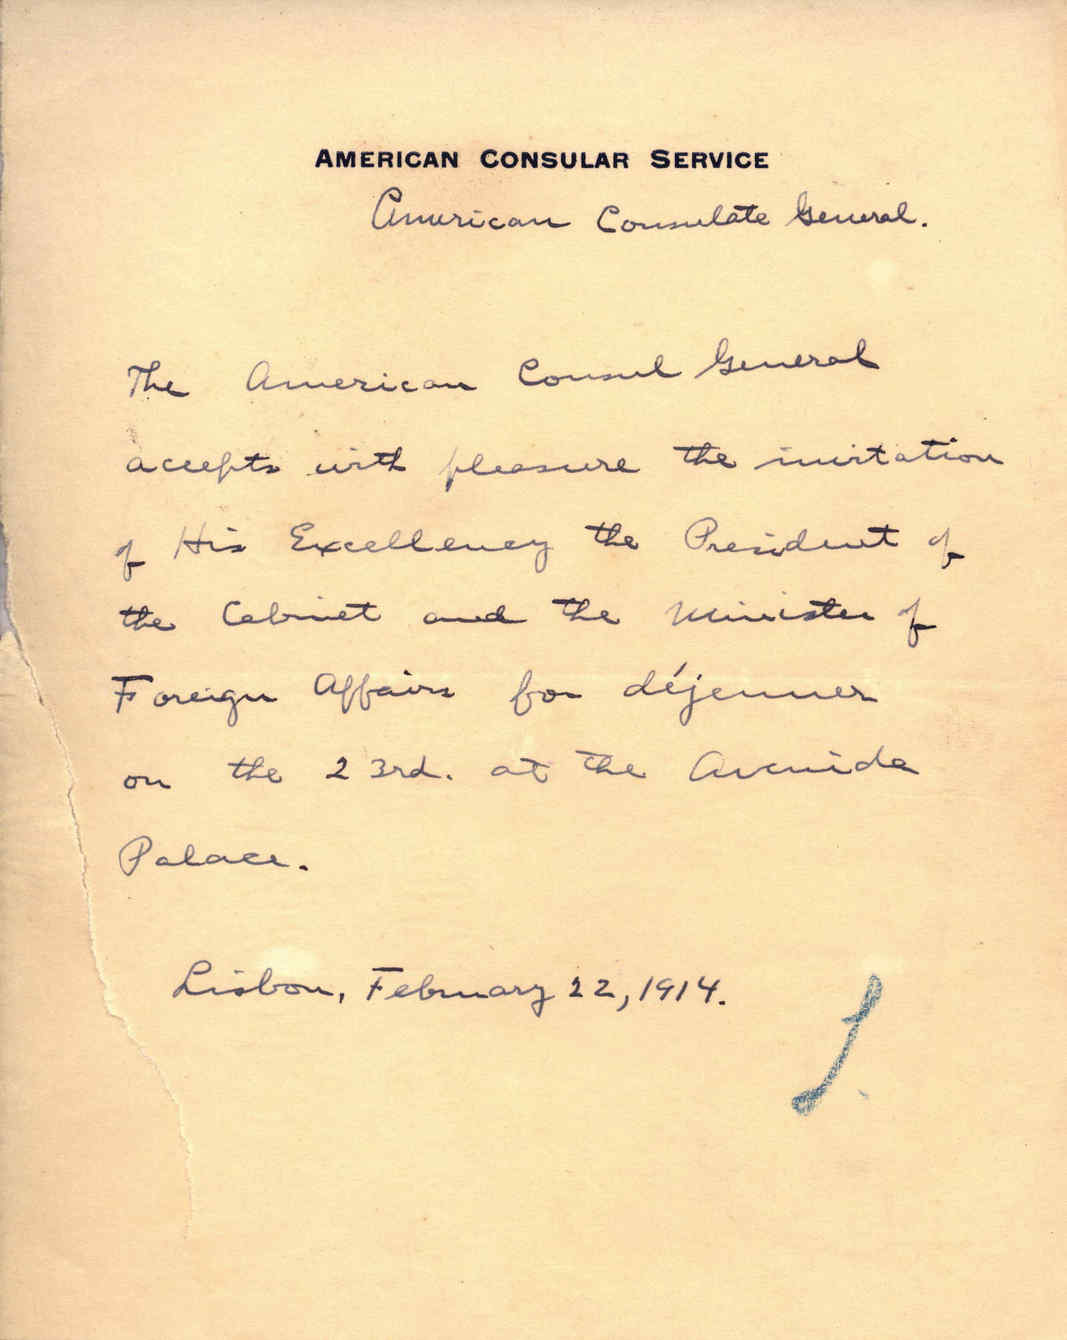 AMERICAN CONSULAR SERVICE
American Consulate General.
The American Consul General
accepts with pleasure the invitation
of His Excellency the President of
the Cabinet and the Minister of
Foreign Affairs for déjeuner
on the 23rd. at the Avenida
Palace.
Lisbon, February 22, 1914.